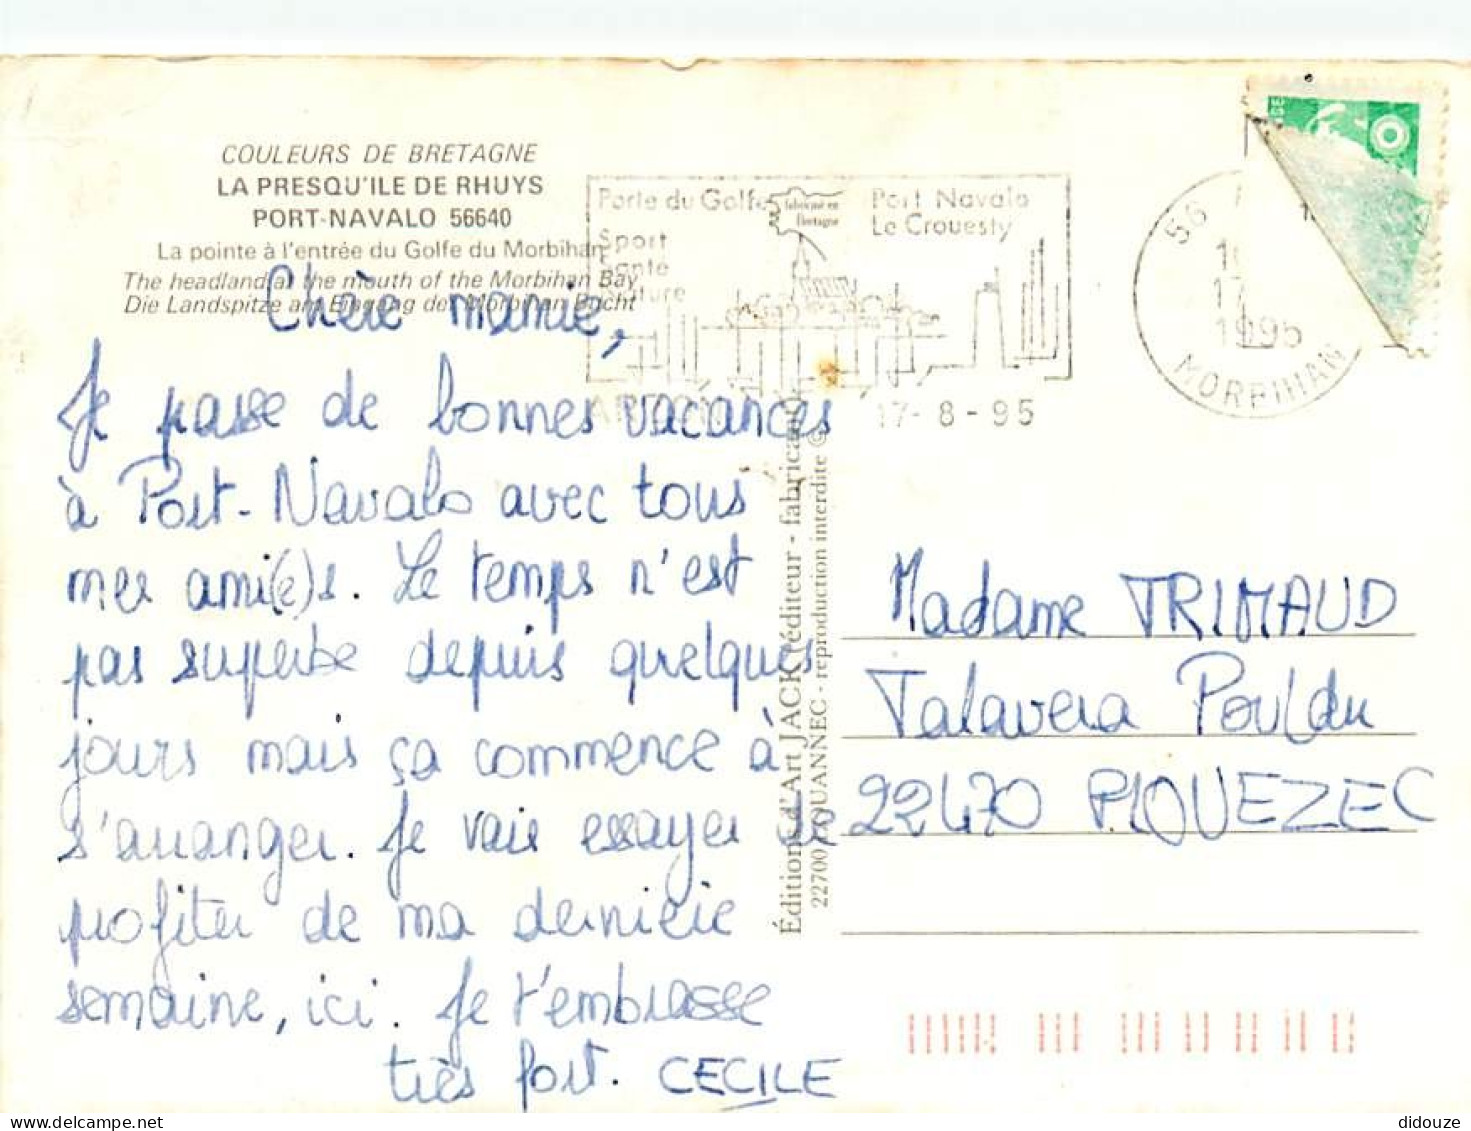 COULEURS DE BRETAGNE
LA PRESQU'ILE DE RHUYS
PORT-NAVALO 56640
La pointe à l'entrée du Golfe du Morbihan
The headland at the mouth of the Morbihan Bay
Die Landspitze am Eingang der Morbihan Bucht
Porte du Golfe
Sport
Santé
Nature
fabriqué en
Bretagne
Port Navalo
Le Crouesty
ARZON
17-8-95
56
17
1995
MORBIHAN
Chère mamie,
Je passe de bonnes vacances
à Port-Navalo avec tous
mes ami(e)s. Le temps n'est
pas superbe depuis quelques
jours mais ça commence à
s'arranger. Je vais essayer de
profiter de ma dernière
semaine, ici. Je t'embrasse
très fort. CECILE
Éditions d'Art JACK éditeur - fabricant
22700 LOUANNEC - reproduction interdite ©
Madame TRIMAUD
Talavera Pouldu
22470 PLOUEZEC
didouze